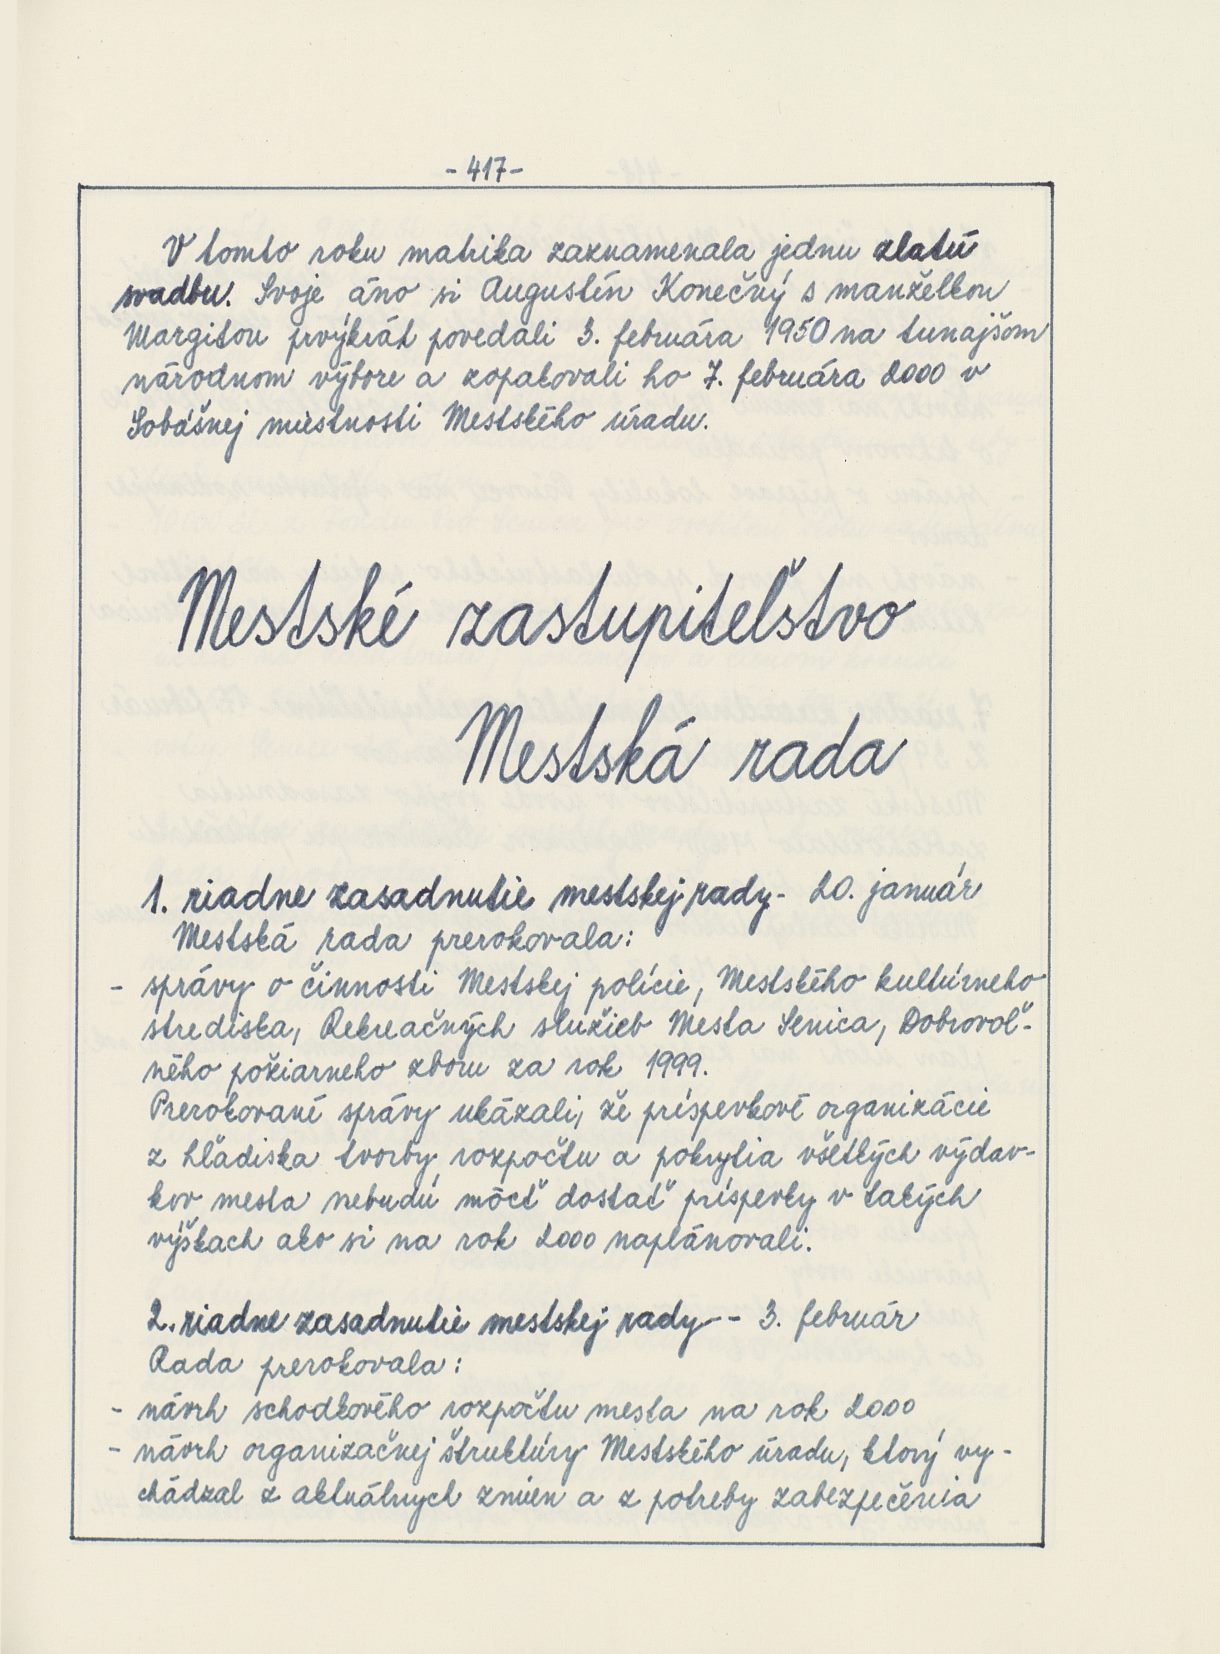 - 417 -
V tomto roku matrika zaznamenala jednu zlatú
svadbu. Svoje áno si Augustín Konečný s manželkou
Margitou prvýkrát povedali 3. februára 1950 na tunajšom
národnom výbore a zopakovali ho 7. februára 2000 v
Sobášnej miestnosti Mestského úradu.
Mestské zastupiteľstvo
Mestská rada
1. riadne zasadnutie mestskej rady - 20. január
Mestská rada prerokovala:
- správy o činnosti Mestskej polície, Mestského kultúrneho
strediska, Rekreačných služieb Mesta Senica, Dobrovoľ-
ného požiarneho zboru za rok 1999.
Prerokované správy ukázali, že príspevkové organizácie
z hľadiska tvorby rozpočtu a pokrytia všetkých výdav-
kov mesta nebudú môcť dostať príspevky v takých
výškach ako si na rok 2000 naplánovali.
2. riadne zasadnutie mestskej rady -- 3. február
Rada prerokovala:
- návrh schodkového rozpočtu mesta na rok 2000
- návrh organizačnej štruktúry Mestského úradu, ktorý vy-
chádzal z aktuálnych zmien a z potreby zabezpečenia